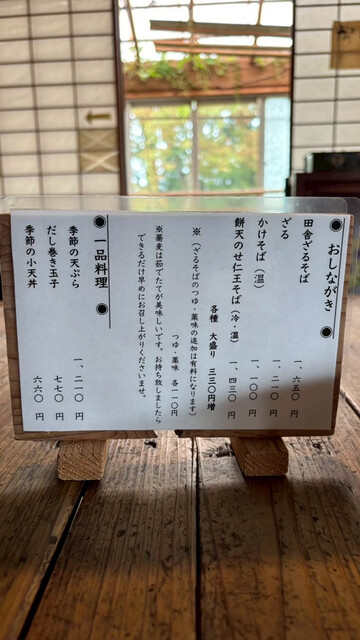 ● おしながき ●
田舎ざるそば 一、六五〇 円
ざる 一、二一〇 円
かけそば(温) 一、一〇〇 円
餅天のせ仁王そば(冷・温) 一、四三〇 円
各種 大盛り 三三〇円増
※(ざるそばのつゆ・薬味の追加は有料になります)
つゆ・薬味 各一一〇円
※蕎麦は茹でたてが美味しいです。お持ち致しましたら
できるだけ早めにお召し上がりくださいませ。
● 一品料理 ●
季節の天ぷら 一、二一〇 円
だし巻き玉子 七七〇 円
季節の小天丼 六六〇 円